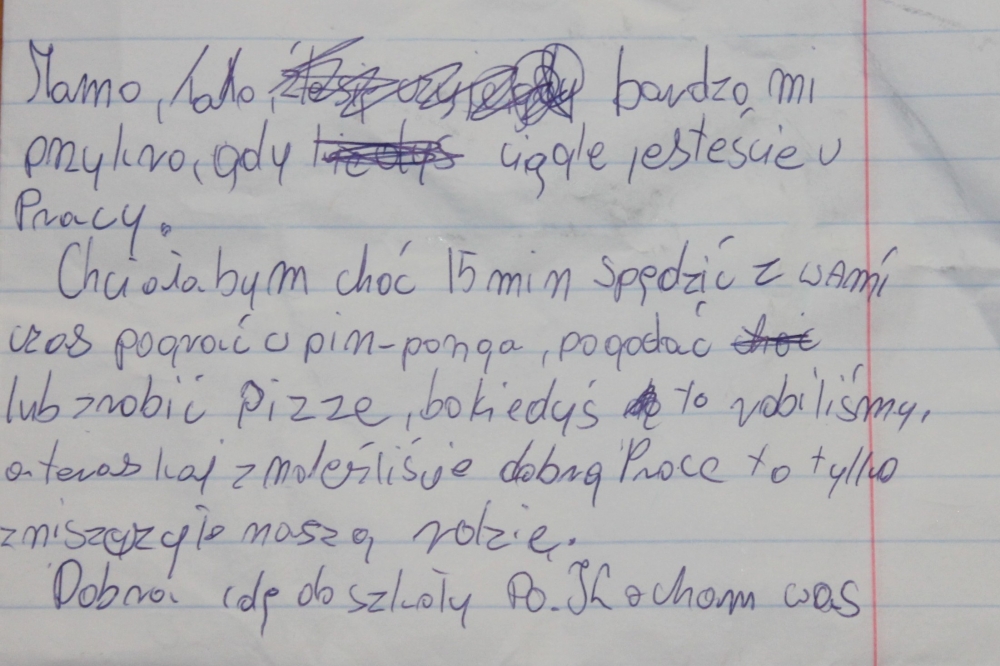 Mamo, tato, bardzo mi
przykro, gdy ciągle jesteście u
Pracy.
Chciałabym choć 15 min spędzić z wami
czas pograić u pin-ponga, pogadać
lub zrobić pizze, bo kiedyś to robiliśmy,
a teras kaj znaleźliście dobrą Prace to tylko
zniszczyło naszą rodzię.
Dobra idę do szkoły Pa. Kocham was